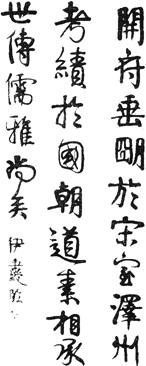 開府垂朙於宋室澤州
考績於國朝道素相承
世傳儒雅尚矣
伊